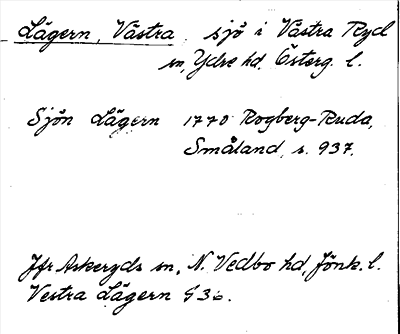 Lägern, Västra, sjö i Västra Ryd
sn, Ydre hd. Österg. l.
Sjön Lägern 1770 Rogberg-Ruda,
Småland, s. 937.
Jfr Askeryds sn, N. Vedbo hd, Jönk. l.
Vestra Lägern G 36.